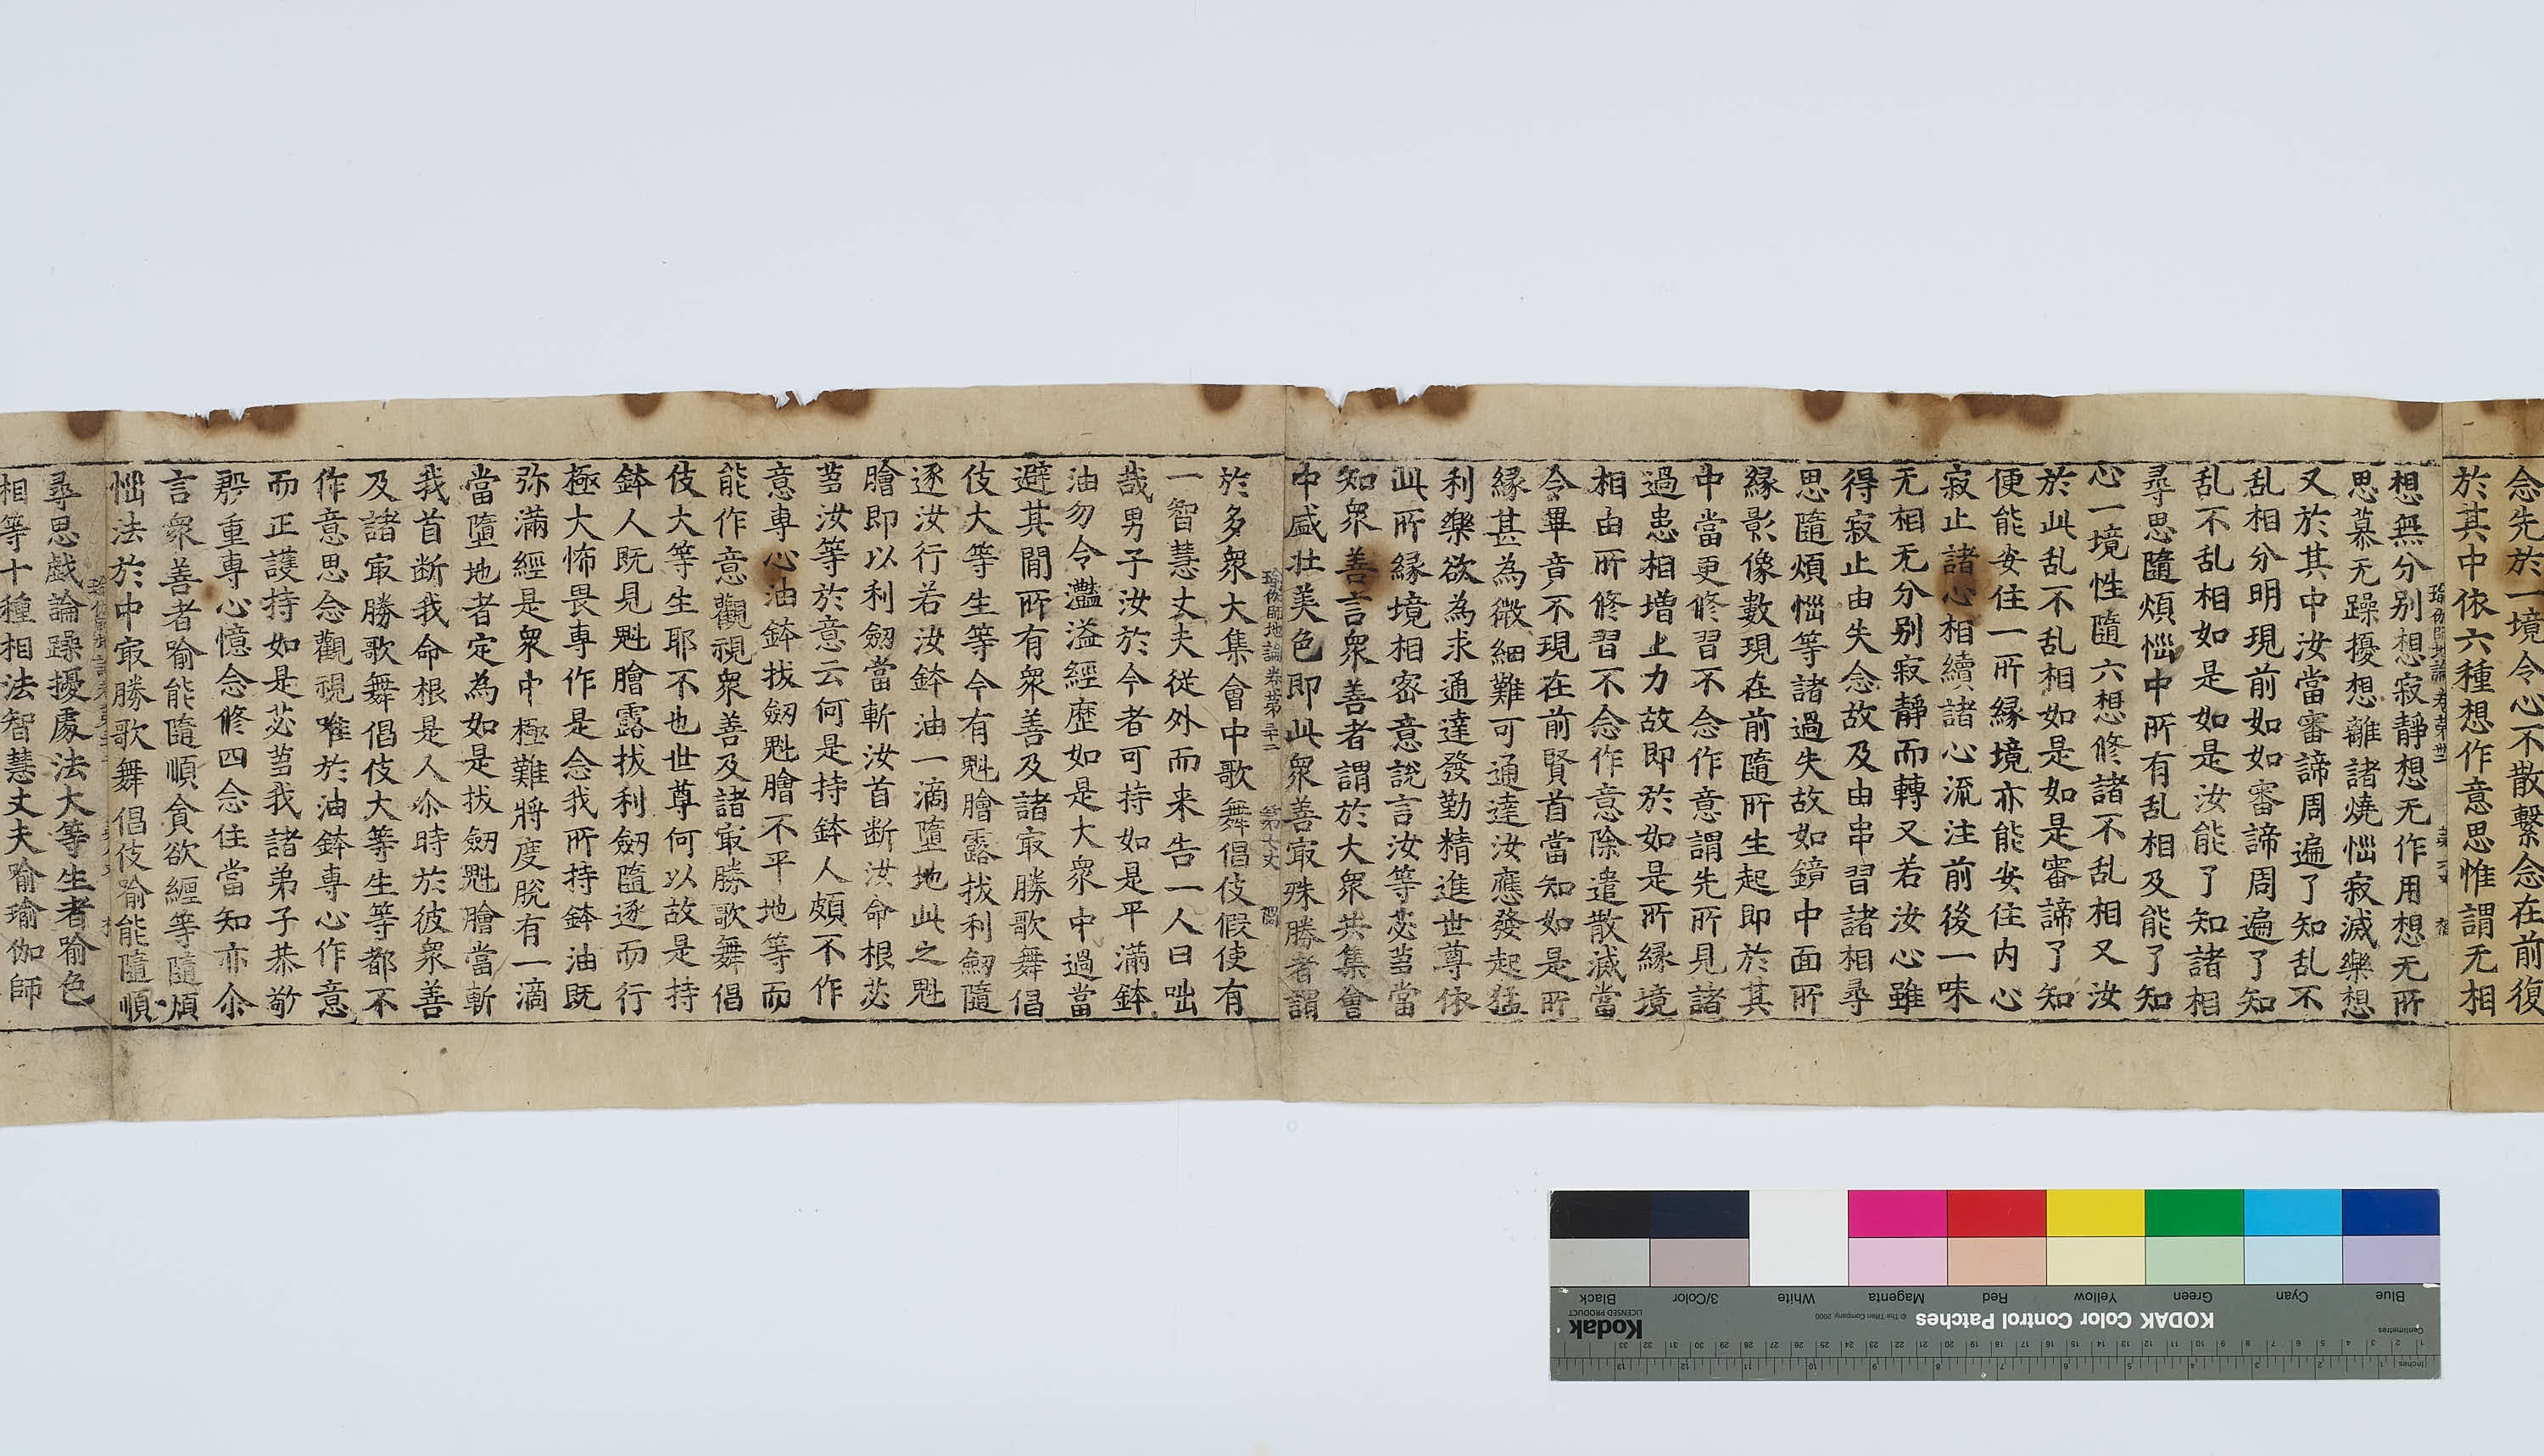 念先於一境令心不散繫念在前復
於其中依六種想作意思惟謂无相
瑜伽師地論卷第卅二
想無分别想寂靜想无作用想无所
思慕无躁擾想離諸燒惱寂滅樂想
又於其中汝當審諦周遍了知乱不
乱相分明現前如如審諦周遍了知
乱不乱相如是如是汝能了知諸相
尋思隨煩惱中所有乱相及能了知
心一境性隨六想修諸不乱相又汝
於此乱不乱相如是如是審諦了知
便能安住一所緣境亦能安住内心
寂止諸心相續諸心流注前後一味
无相无分别寂靜而轉又若汝心雖
得寂止由失念故及由串習諸相尋
思隨煩惱等諸過失故如鏡中面所
緣影像數現在前隨所生起即於其
中當更修習不念作意謂先所見諸
過患相增上力故即於如是所緣境
相由所修習不念作意除遣散滅當
令畢竟不現在前賢首當知如是所
緣甚為微細難可通達汝應發起猛
利樂欲為求通達發勤精進世尊依
此所緣境相密意說言汝等苾芻當
知衆善言衆善者謂於大衆共集會
中盛壯美色即此衆善㝡殊勝者謂
瑜伽師地論卷第三十二 第七丈
於多衆大集會中歌舞倡伎假使有
一智慧丈夫從外而来告一人曰咄
哉男子汝於今者可持如是平滿鉢
油勿令灩溢經歷如是大衆中過當
避其閒所有衆善及諸㝡勝歌舞倡
伎大等生等今有魁膾露拔利劒隨
逐汝行若汝鉢油一滴墮地此之魁
膾即以利劒當斬汝首断汝命根苾
芻汝等於意云何是持鉢人頗不作
意專心油鉢拔劒魁膾不平地等而
能作意觀視衆善及諸㝡勝歌舞倡
伎大等生耶不也世尊何以故是持
鉢人既見魁膾露拔利劒隨逐而行
極大怖畏專作是念我所持鉢油既
弥滿經是衆中極難將度脫有一滴
當墮地者定為如是拔劒魁膾當斬
我首断我命根是人尒時於彼衆善
及諸㝡勝歌舞倡伎大等生等都不
作意思念觀視唯於油鉢專心作意
而正護持如是苾芻我諸弟子恭敬
慇重專心憶念修四念住當知亦尒
言衆善者喻能隨順貪欲纏等隨煩
惱法於中㝡勝歌舞倡伎喻能隨順
尋思戲論躁擾處法大等生者喻色
相等十種相法智慧丈夫喻瑜伽師
KODAK Color Control Patches
Kodak
LICENSED PRODUCT
© The Tiffen Company, 2000
Blue Cyan Green Yellow Red Magenta White 3/Color Black
Centimetres
Inches